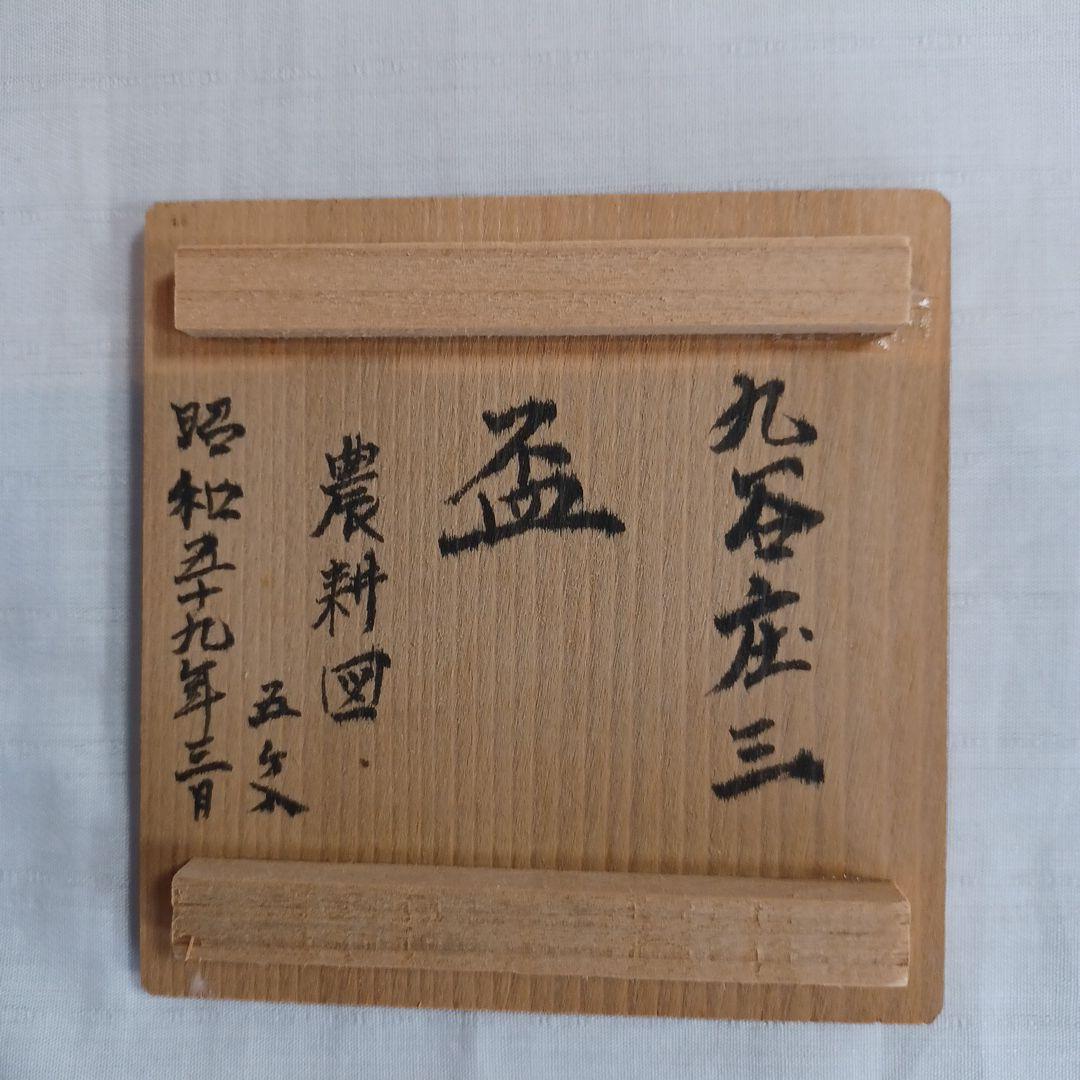 九谷庄三
盃
農耕図
五ケ入
昭和五十九年三月